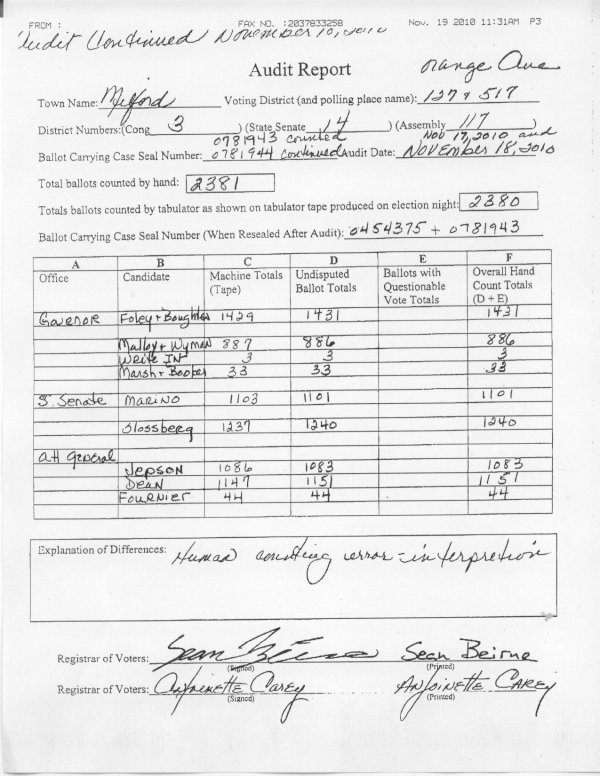 FROM : FAX NO. :2037833258 Nov. 19 2010 11:31AM P3
Audit Continued November 10, 2010
Orange Ave
Audit Report
Town Name: Milford Voting District (and polling place name): 127 + 517
District Numbers:(Cong 3 ) (State Senate 14 ) (Assembly 117 )
0781943 counted Nov 17, 2010 and
Ballot Carrying Case Seal Number: 0781944 continued Audit Date: November 18, 2010
Total ballots counted by hand: 2381
Totals ballots counted by tabulator as shown on tabulator tape produced on election night: 2380
Ballot Carrying Case Seal Number (When Resealed After Audit): 0454375 + 0781943
A B C D E F
Office Candidate Machine Totals (Tape) Undisputed Ballot Totals Ballots with Questionable Vote Totals Overall Hand Count Totals (D + E)
Govenor Foley + Boughton 1429 1431 1431
Malloy + Wyman 887 886 886
Write IN 3 3 3
Marsh + Booper 33 33 33
S. Senate Marino 1103 1101 1101
Slossberg 1237 1240 1240
att general
Jepson 1086 1083 1083
Dean 1147 1151 1151
Fournier 44 44 44
Explanation of Differences: Human counting error - interpretion
Registrar of Voters: Sean Beirne Sean Beirne
(Signed) (Printed)
Registrar of Voters: Antoinette Carey Antoinette Carey
(Signed) (Printed)